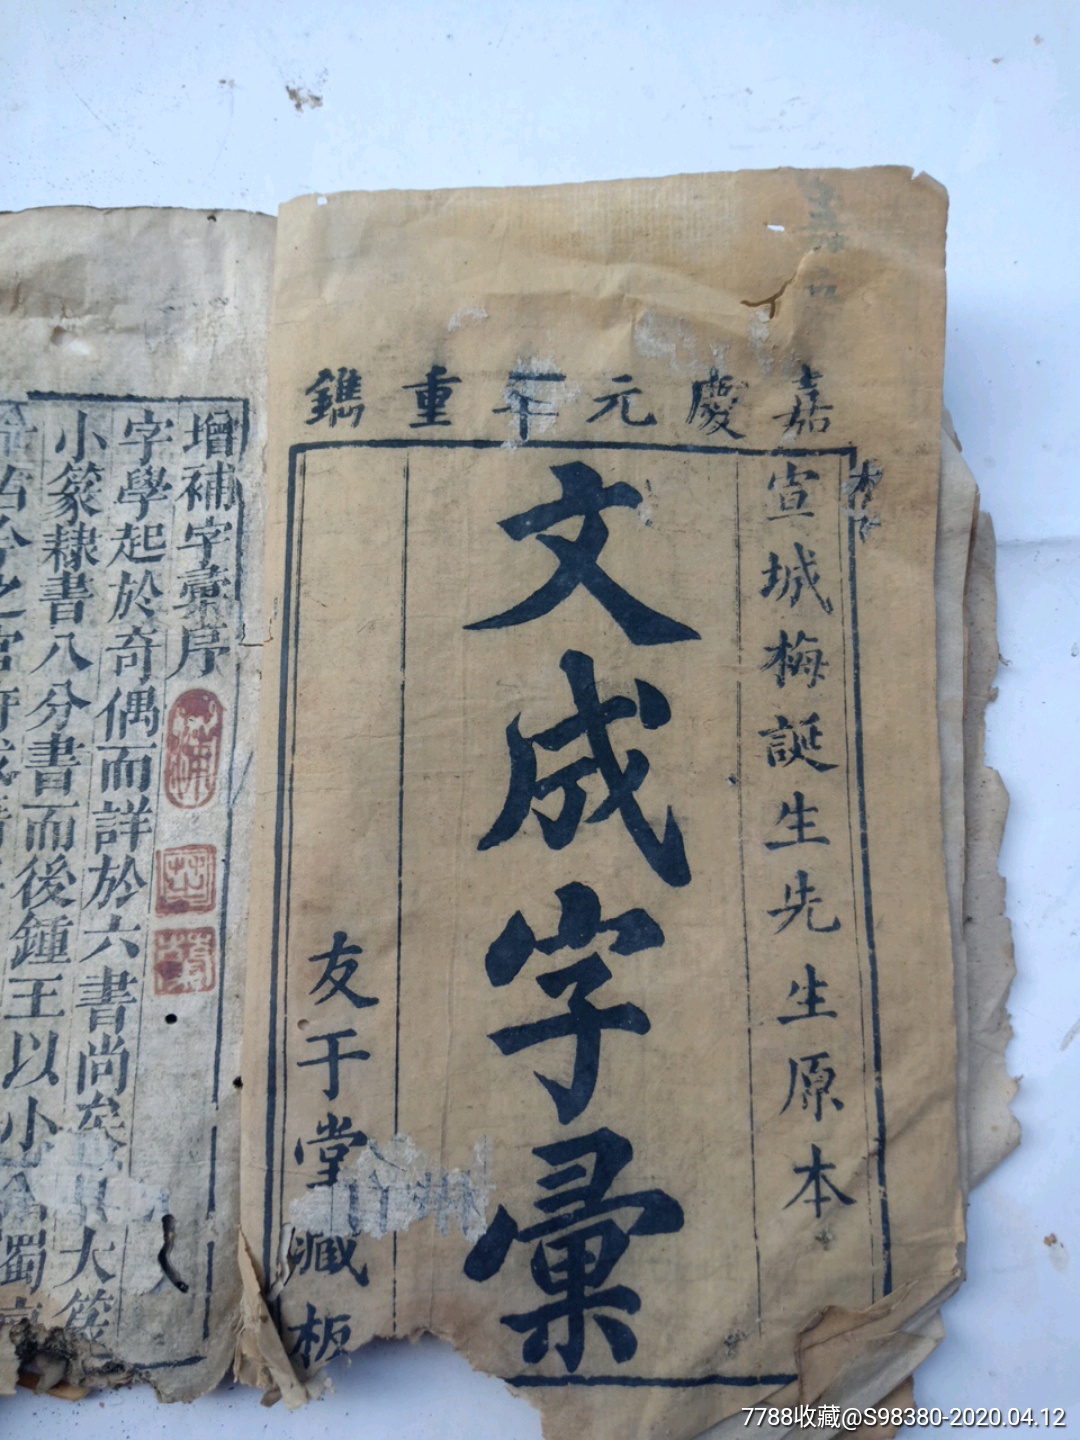 嘉慶元年重鐫
宣城梅誕生先生原本
文成字彙
友于堂藏板
增補字彙序
字學起於奇偶而詳於六書尚矣
大篆
小篆隸書八分書而後鍾王以小
蜀
古今之官府
7788收藏@S98380-2020.04.12